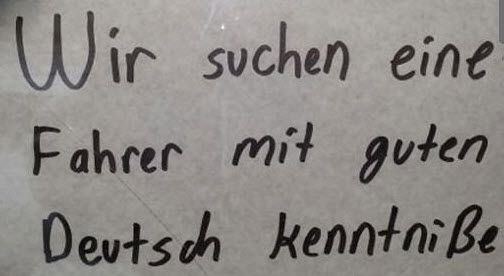 Wir suchen eine
Fahrer mit guten
Deutsch kenntniße